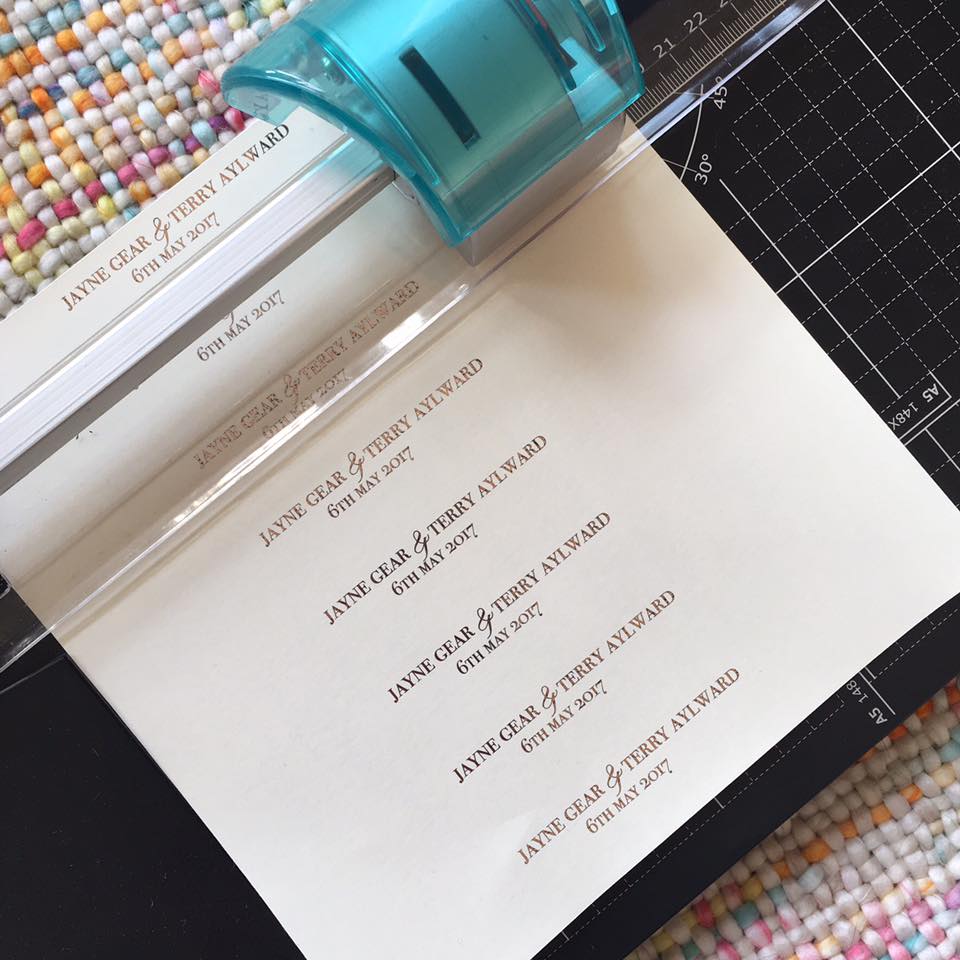 JAYNE GEAR & TERRY AYLWARD
6TH MAY 2017
6TH MAY 2017
JAYNE GEAR & TERRY AYLWARD
6TH MAY 2017
JAYNE GEAR & TERRY AYLWARD
6TH MAY 2017
JAYNE GEAR & TERRY AYLWARD
6TH MAY 2017
JAYNE GEAR & TERRY AYLWARD
6TH MAY 2017
JAYNE GEAR & TERRY AYLWARD
6TH MAY 2017
JAYNE GEAR & TERRY AYLWARD
6TH MAY 2017
21 22
45°
30°
A5 148X
A5 148